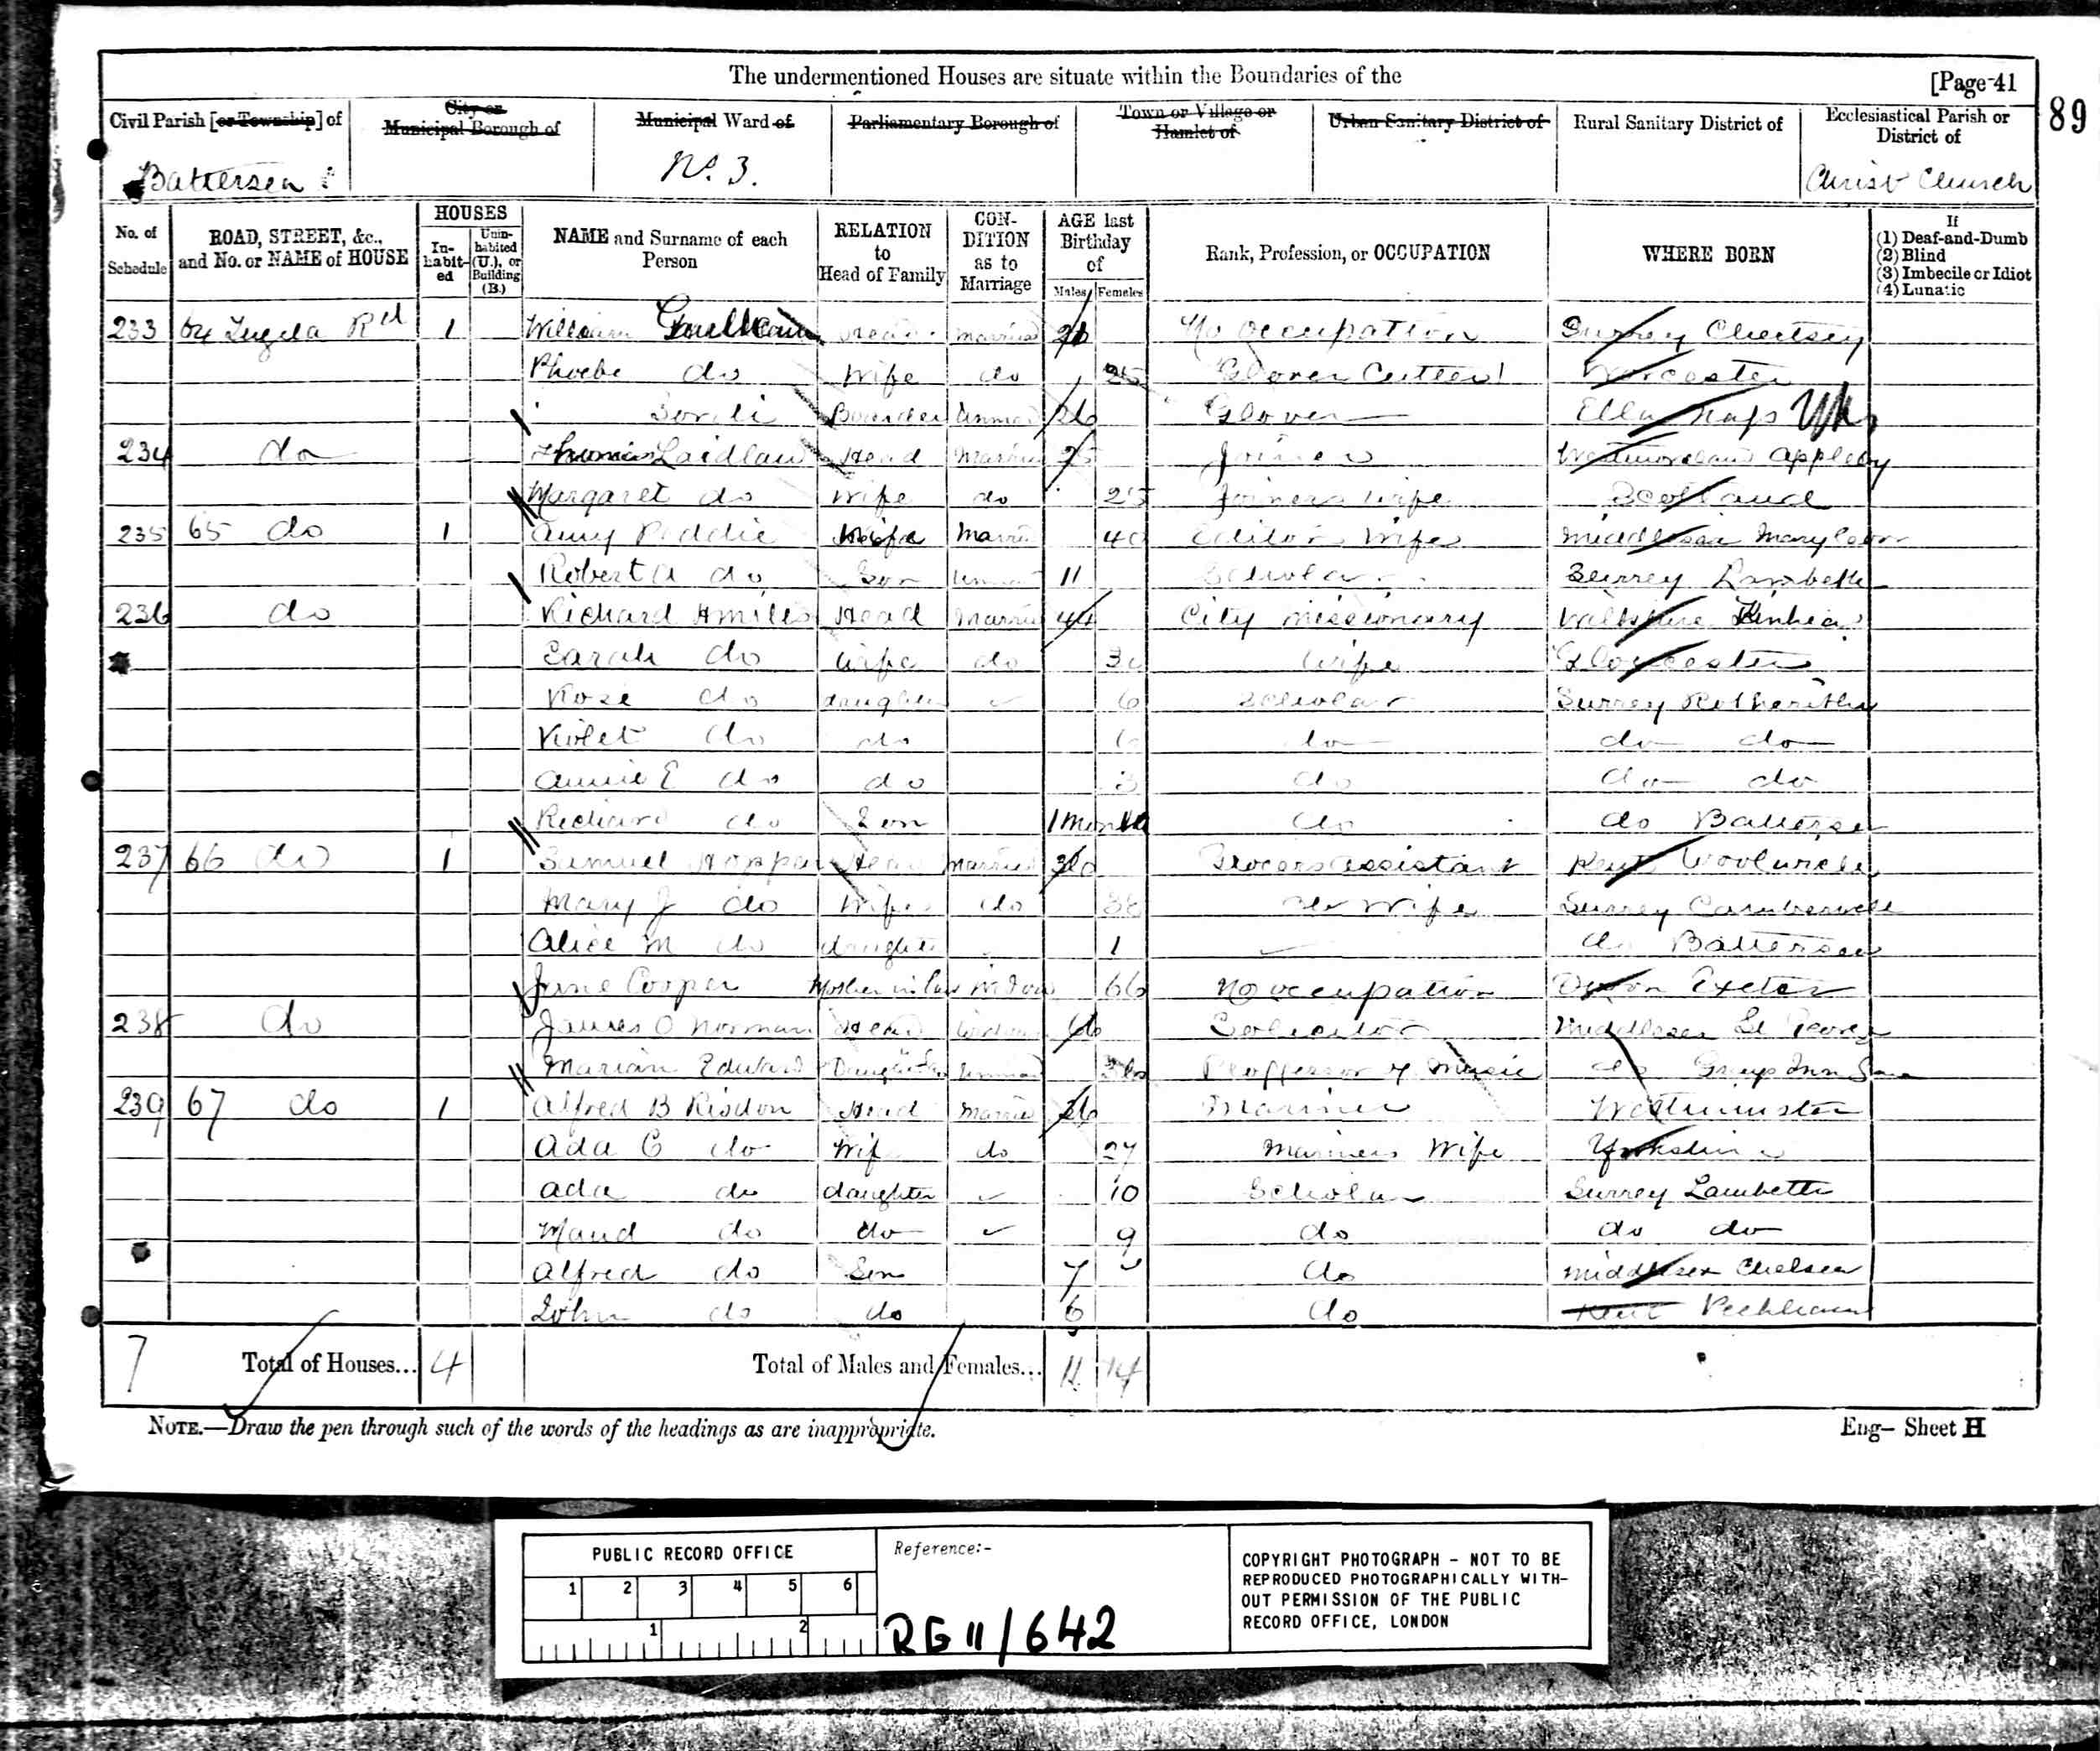 The undermentioned Houses are situate within the Boundaries of the [Page 41
89
Civil Parish [or Township] of City or Municipal Borough of Municipal Ward of Parliamentary Borough of Town or Village or Hamlet of Urban Sanitary District of Rural Sanitary District of Ecclesiastical Parish or District of
Battersea No. 3. Christ Church
No. of Schedule ROAD, STREET, &c., and No. or NAME of HOUSE HOUSES Inhabited Uninhabited (U.), or Building (B.) NAME and Surname of each Person RELATION to Head of Family CONDITION as to Marriage AGE last Birthday of Males Females Rank, Profession, or OCCUPATION WHERE BORN If (1) Deaf-and-Dumb (2) Blind (3) Imbecile or Idiot (4) Lunatic
233 64 Tugela Rd 1 William Head Married No occupation Surrey Chertsey
Phoebe do Wife do 25 Glover Cutter Worcester
Boarder Unmar 26 Glover
234 do Thomas Laidlaw Head Married 25 Joiner Westmoreland Appleby
Margaret do Wife do 25 Joiners wife Scotland
235 65 do 1 Amy Peddie Wife Marri 40 Editors Wife Middlesex Marylebon
Robert A do Son Unmar 11 Scholar Surrey Lambeth
236 do Richard H Mills Head Married 44 City Missionary Wiltshire
Sarah do Wife do Wife Gloucester
Rose do daughter 6 Scholar Surrey Rotherithe
Violet do do do do do
Annie E do do 3 do do do
Richard do Son 1 Month do do Battersea
237 66 do 1 Samuel Hopper Head Married 30 Grocers assistant Kent Woolwich
Mary J do Wife do 38 Wife Surrey Camberwell
Alice M do daughter 1 do Battersea
Jane Cooper Mother in law Widow 66 No occupation Devon Exeter
238 do James O Norman Head Solicitor Middlesex St
Marian Edward Unmar Proffessor of Music do Grays Inn
239 67 do 1 Alfred B Risdon Head Married 36 Mariner Westminster
Ada C do Wife do 27 Mariners Wife Yorkshire
Ada do daughter 10 Scholar Surrey Lambeth
Maud do do 9 do do do
Alfred do Son 7 do Middlesex Chelsea
John do do 6 do Kent Peckham
7 Total of Houses... 4 Total of Males and Females... 11 14
NOTE.—Draw the pen through such of the words of the headings as are inappropriate. Eng— Sheet H
PUBLIC RECORD OFFICE
1 2 3 4 5 6
1 2
Reference:-
RG 11/642
COPYRIGHT PHOTOGRAPH - NOT TO BE
REPRODUCED PHOTOGRAPHICALLY WITH-
OUT PERMISSION OF THE PUBLIC
RECORD OFFICE, LONDON